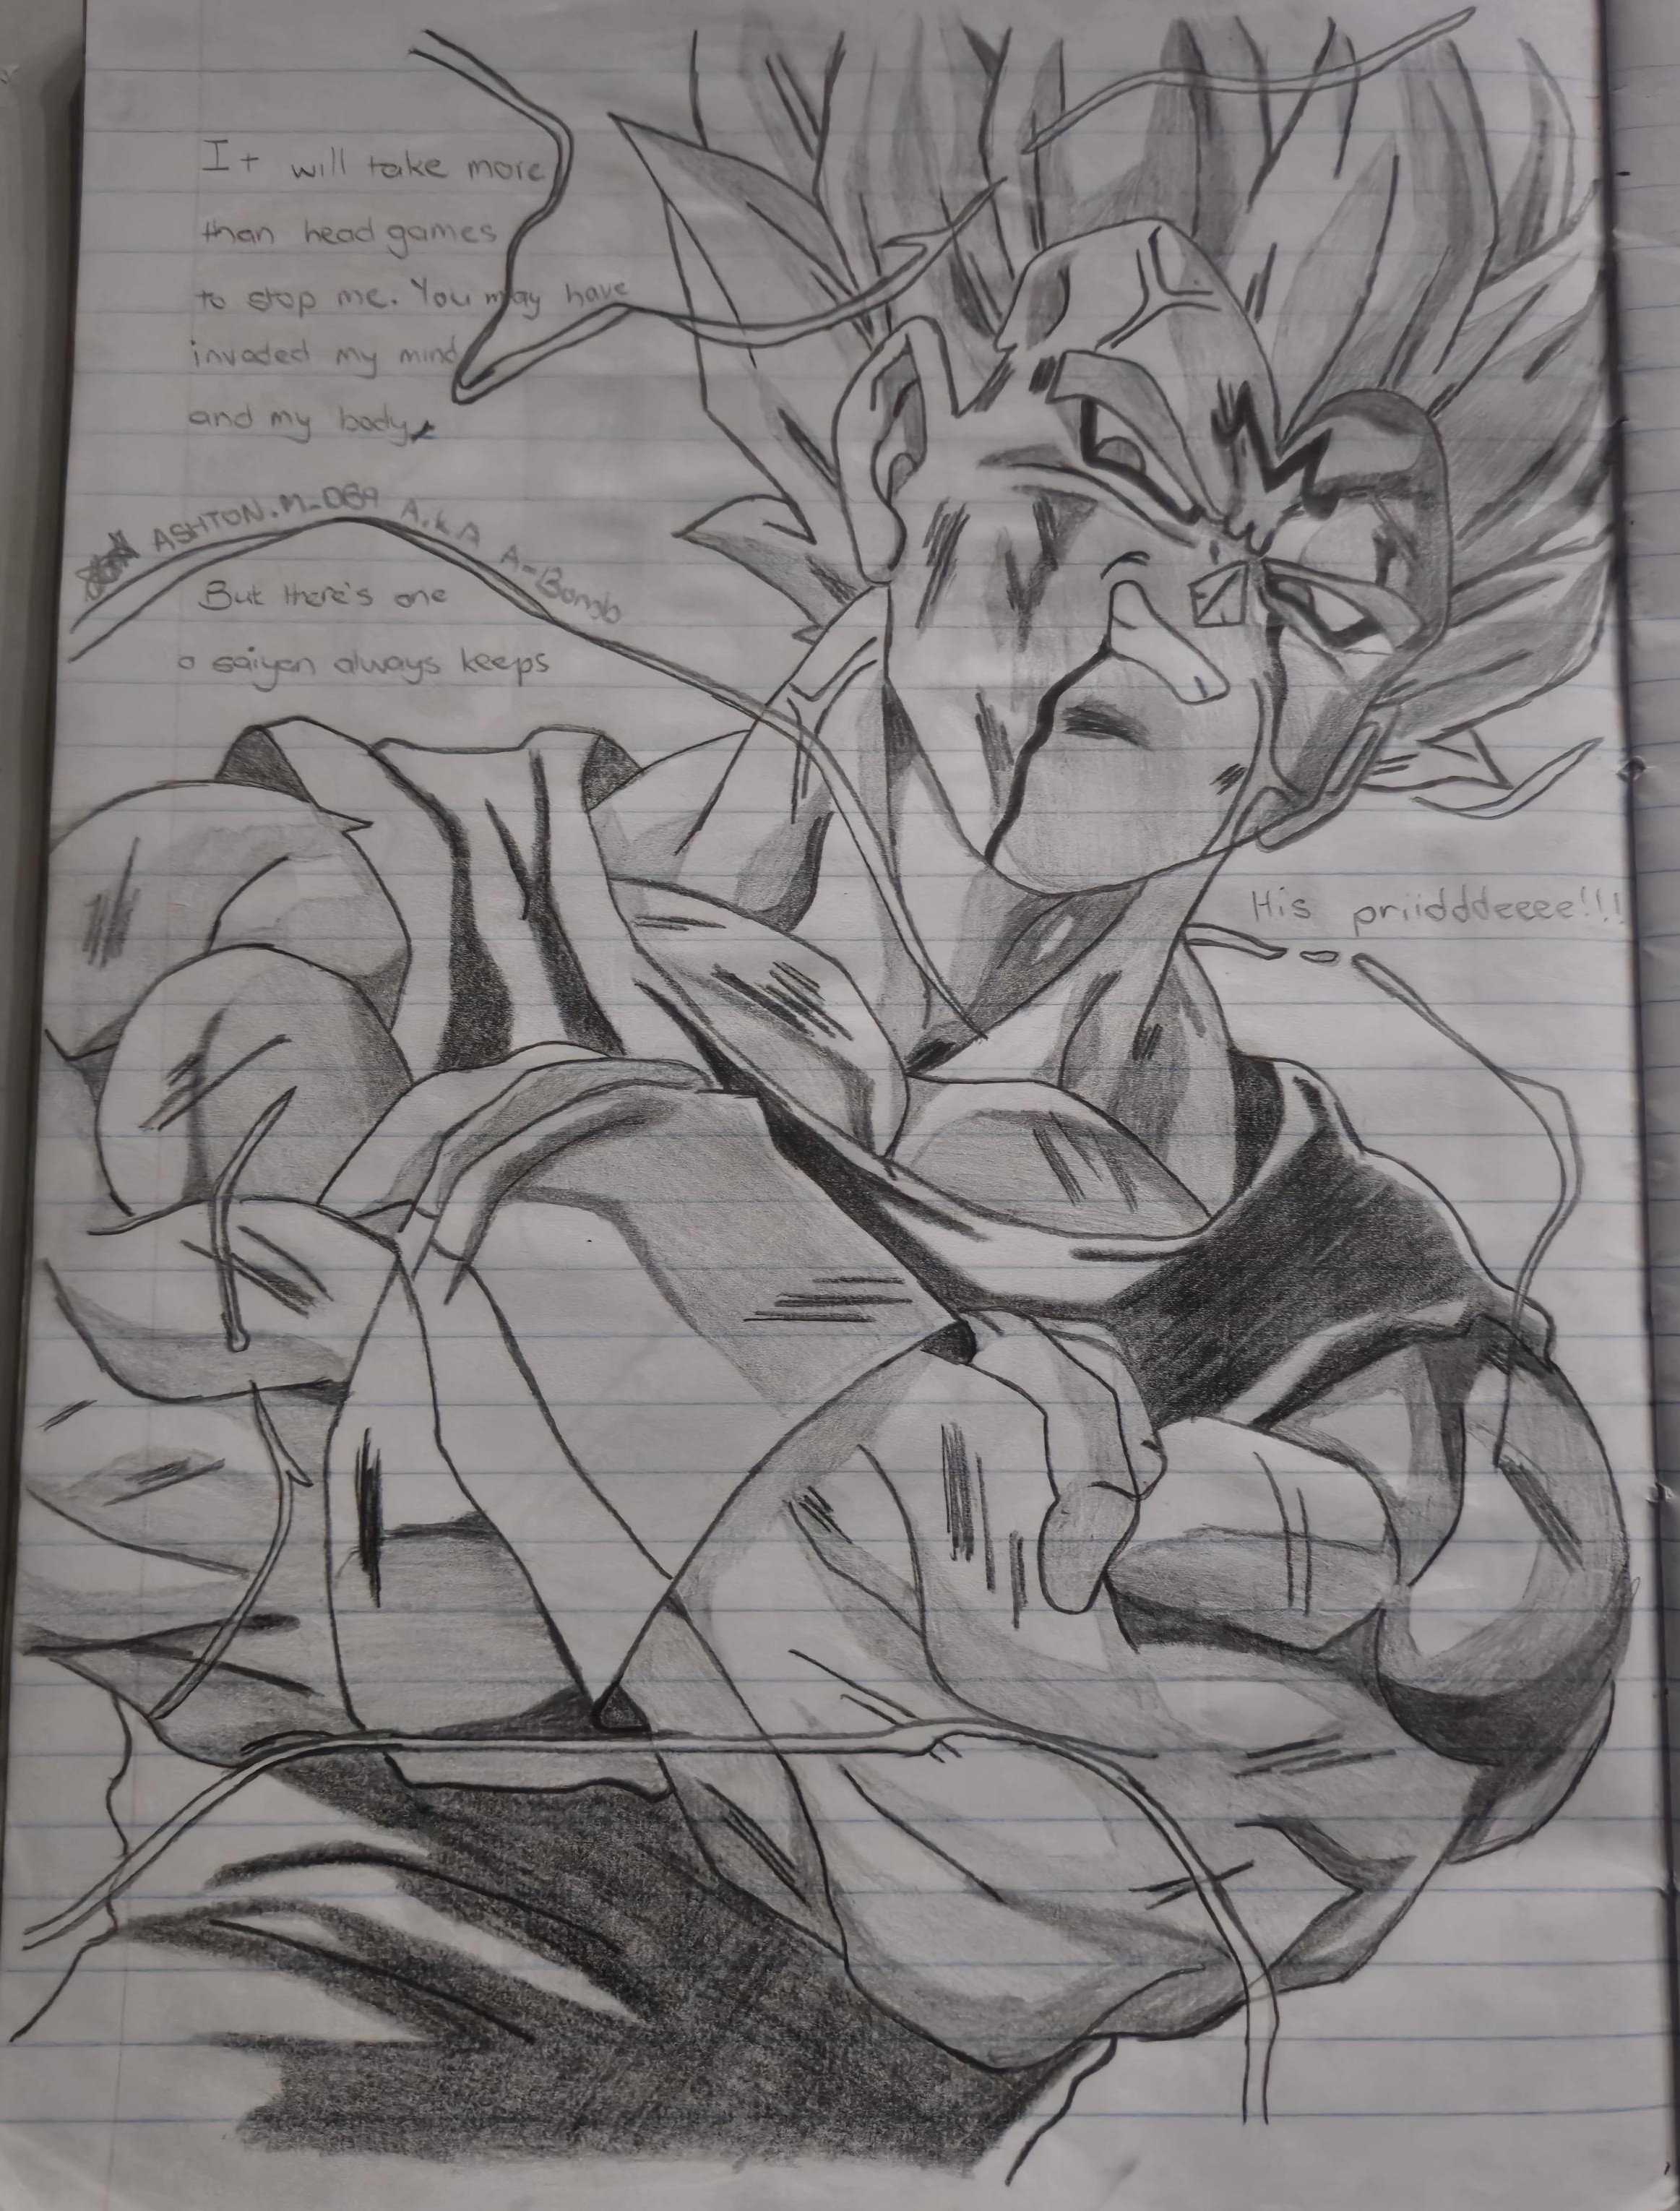 It will take more
than head games
to stop me. You may have
invaded my mind
and my body,
ASHTON.M_DB9 A.K.A A-Bomb
But there's one
a saiyan always keeps
His priidddeeee!!!